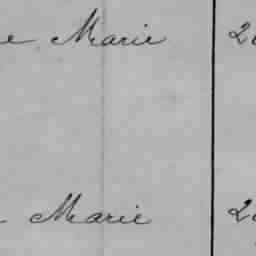 e Marie 2
Marie 2